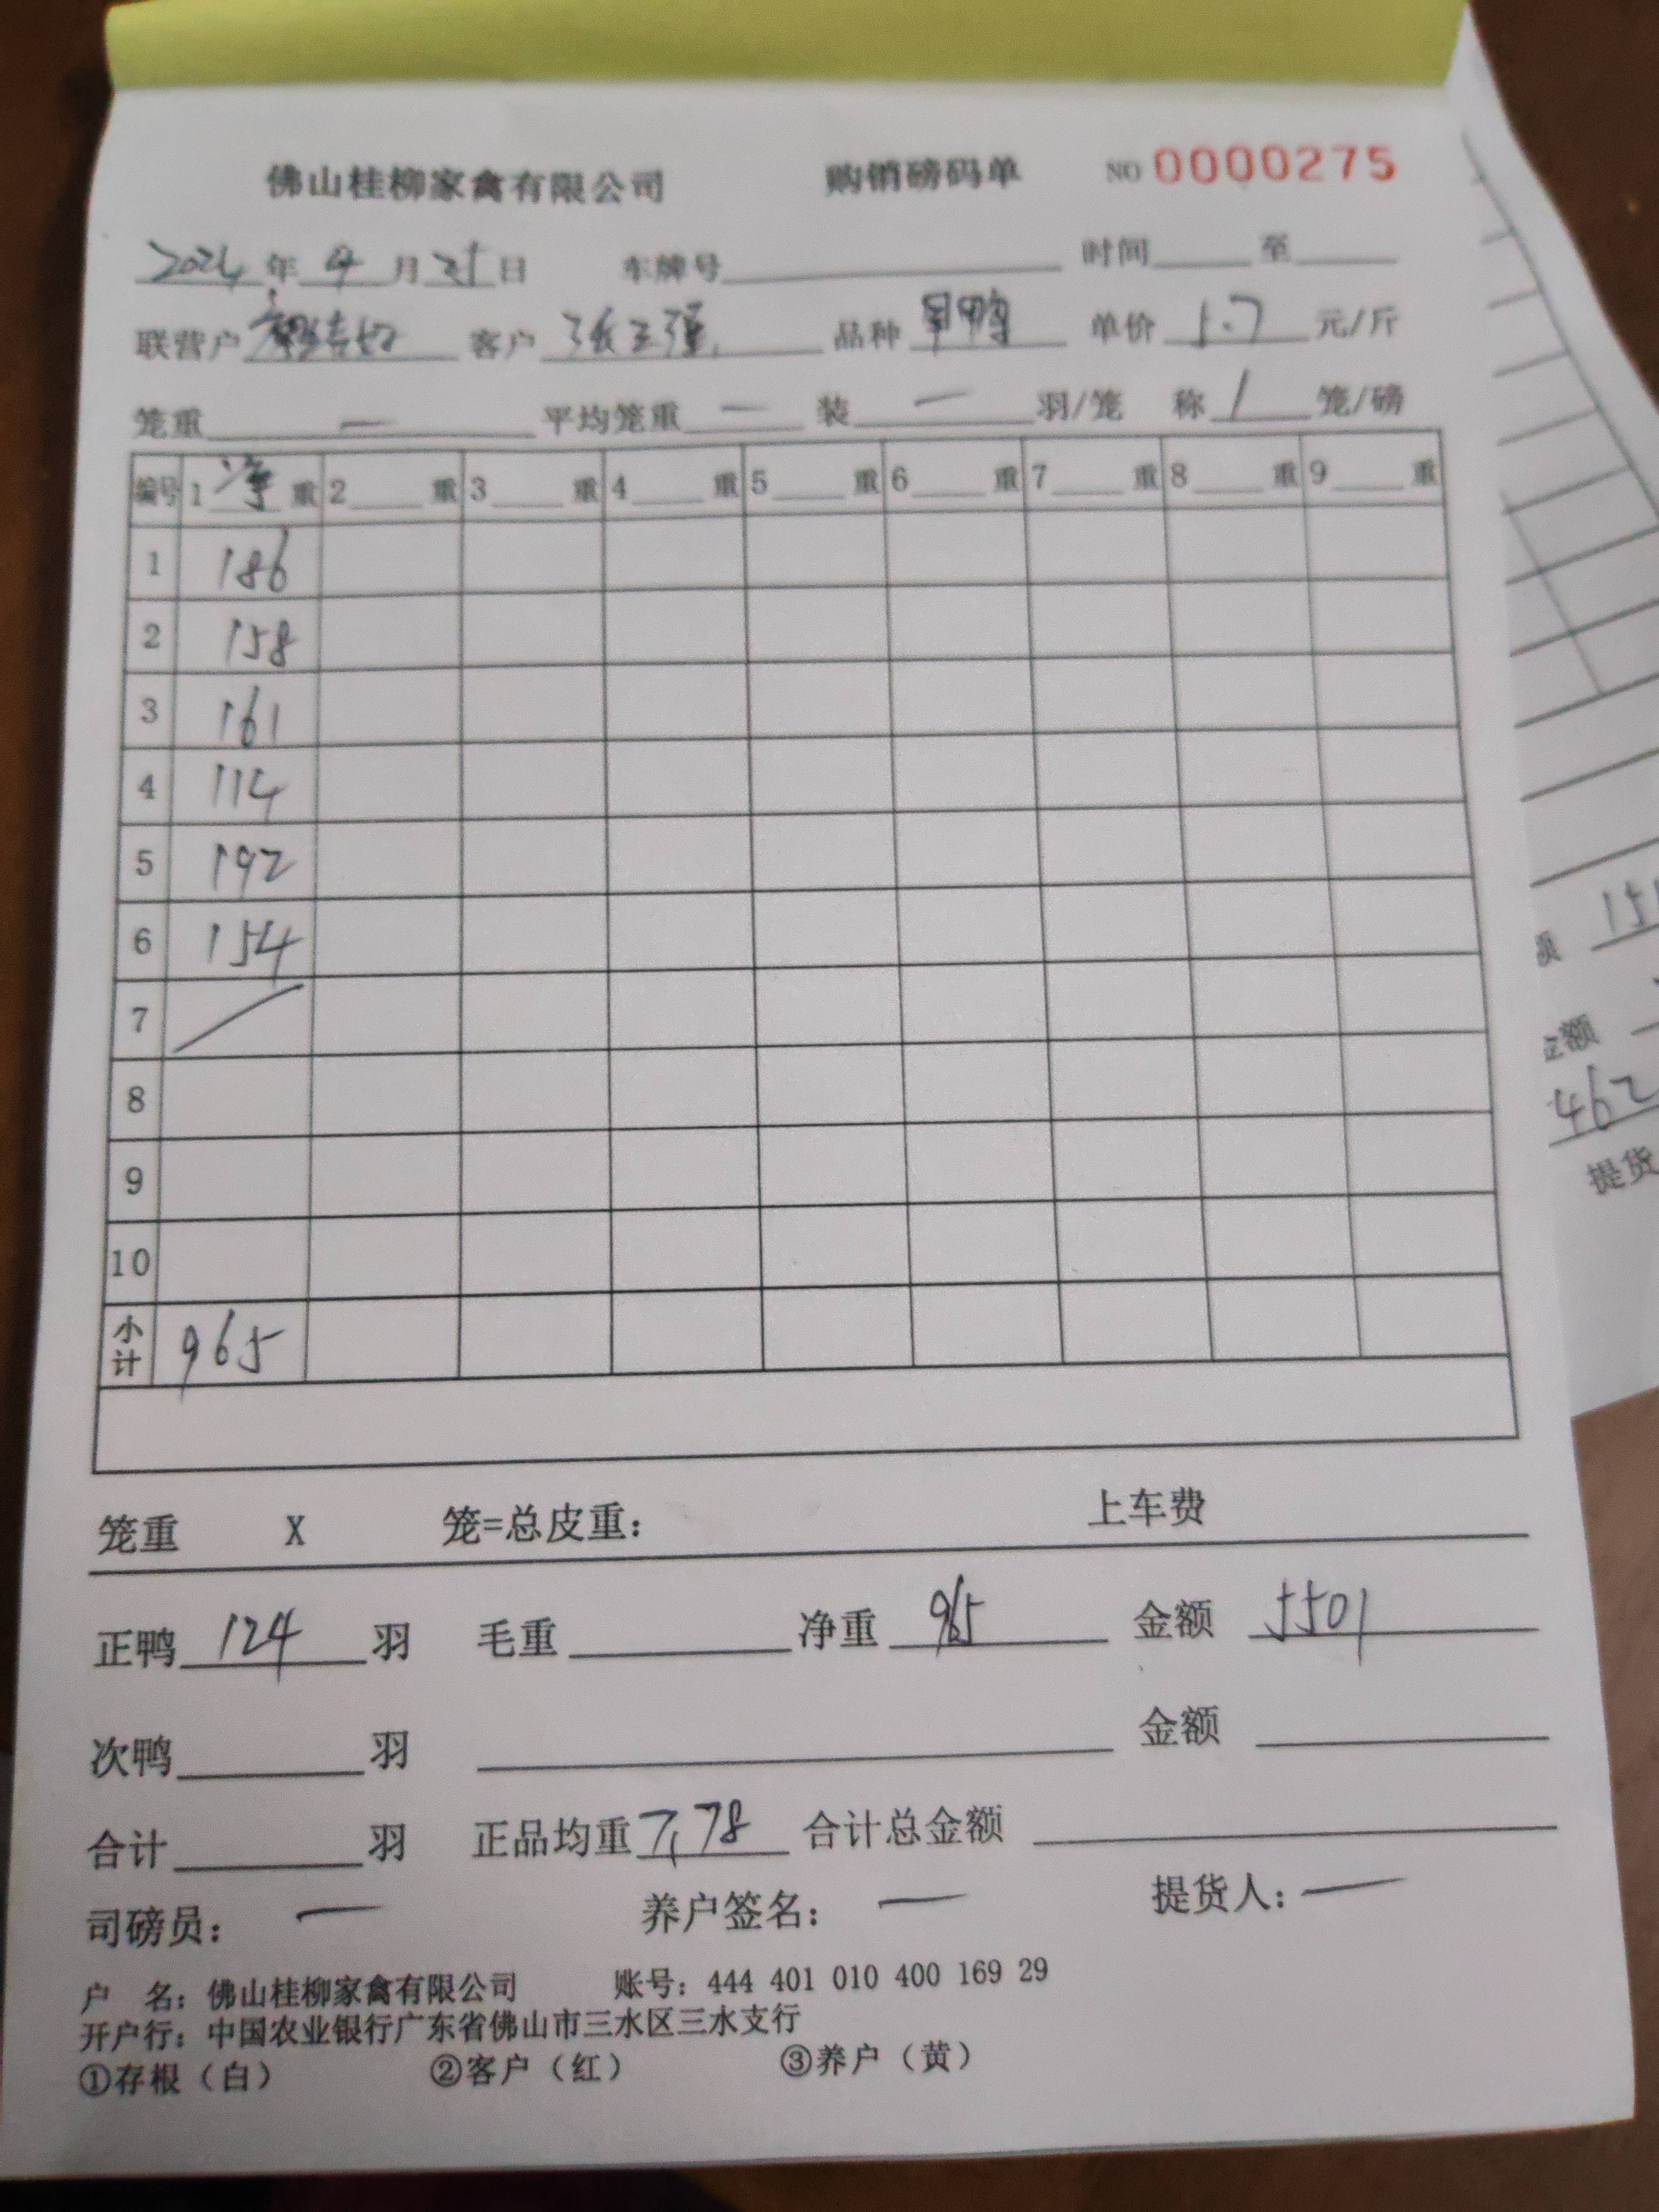 佛山桂柳家禽有限公司 购销磅码单 NO 0000275
2024 年 4 月 21 日 车牌号 时间 至
联营户 客户 张玉强 品种 旱鸭 单价 5.7 元/斤
笼重 — 平均笼重 — 装 — 羽/笼 称 1 笼/磅
编号 1 净 重 2 重 3 重 4 重 5 重 6 重 7 重 8 重 9 重
1 186
2 158
3 161
4 114
5 192
6 154
7 /
8
9
10
小计 965
笼重 X 笼=总皮重: 上车费
正鸭 124 羽 毛重 净重 965 金额 5501
次鸭 羽 金额
合计 羽 正品均重 7.78 合计总金额
司磅员: — 养户签名: — 提货人: —
户 名: 佛山桂柳家禽有限公司 账号: 444 401 010 400 169 29
开户行: 中国农业银行广东省佛山市三水区三水支行
①存根（白） ②客户（红） ③养户（黄）
462
提货